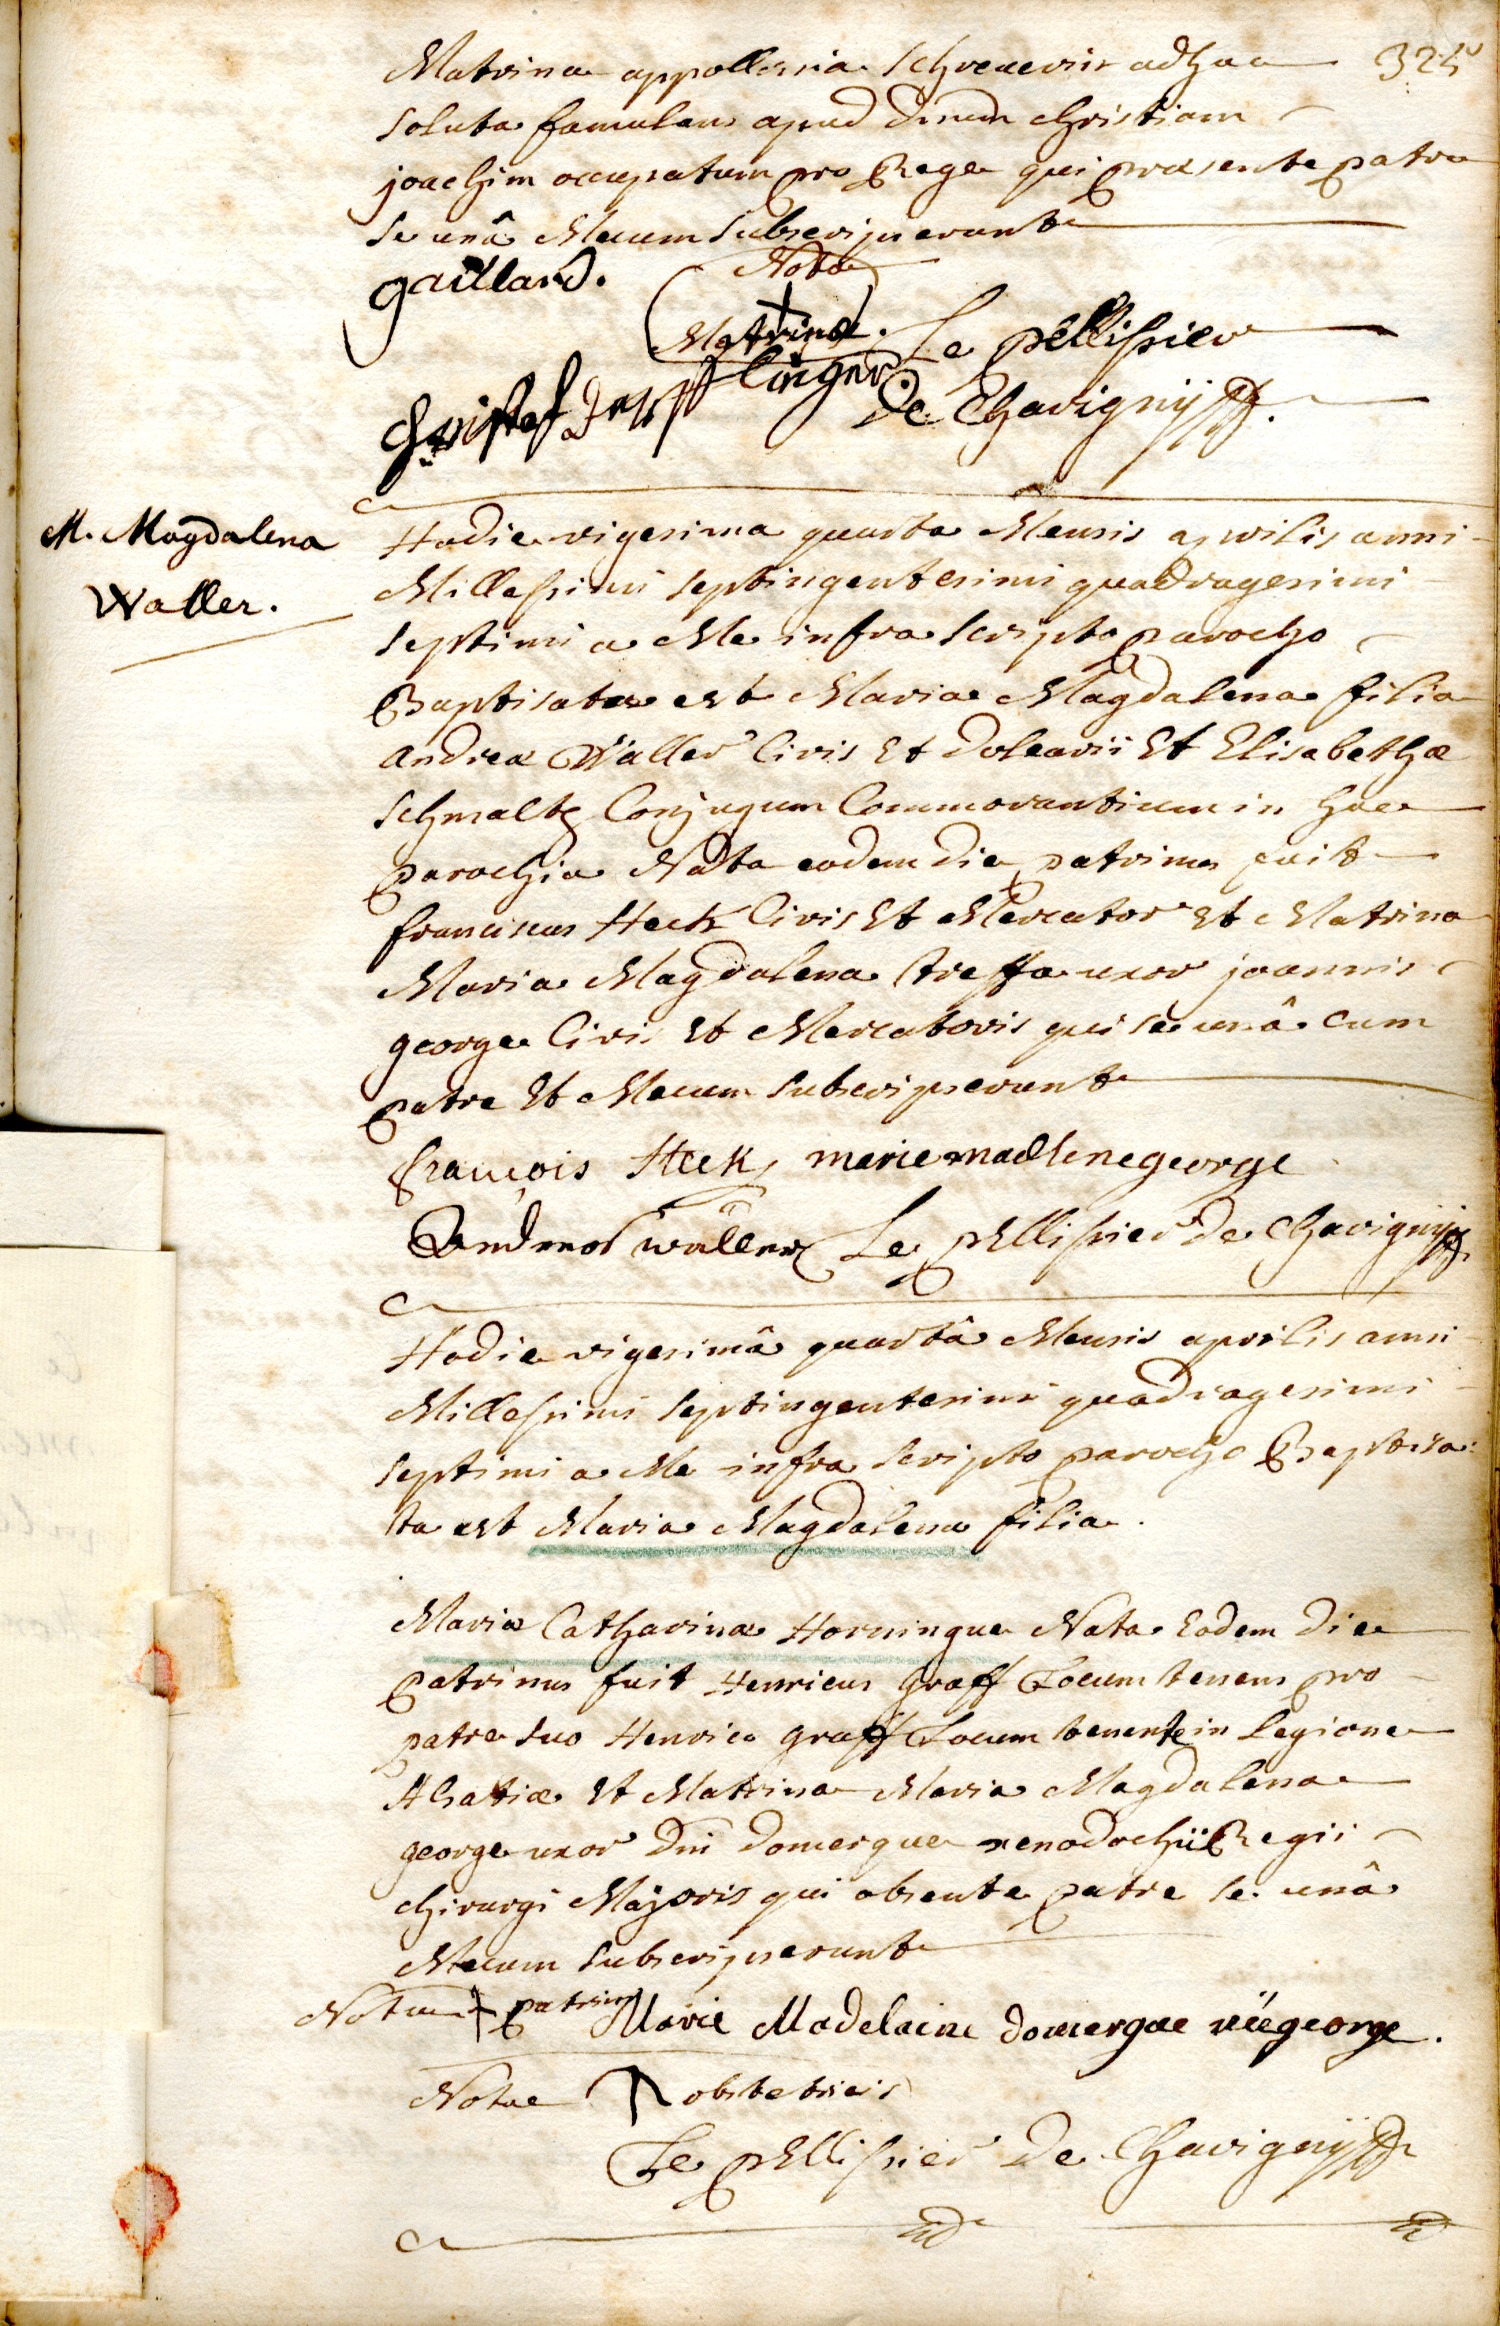 Matrina appollonia Schreuerin adhuc 325
soluta famulans apud dnum christian
joachim occupatum pro Rege qui præsente patre
se unâ Mecum subscripserunt
gaillard. Nota
Matrinæ. Le pellissier
christof linger De Chavigny
Hodie vigesima quarta Mensis aprilis anni
M. Magdalena
Waller.
Millessimi septingentesimi quadragesimi
septimi a Me infra scripto parocho
Baptisata est Maria Magdalena filia
andreæ Waller Civis Et dolearii Et Elisabethæ
schmaltz Conjugum Commorantium in hac
parochia Nata eodem die patrinus fuit
franciscus Heck Civis Et Mercator Et Matrina
Maria Magdalena treffa uxor joannis
george Civis Et Mercatoris qui se unâ cum
patre Et Mecum subscripserunt
françois Heck marie madlene george
Andreas waller Le pellissier De Chavigny
Hodie vigesimâ quartâ Mensis aprilis anni
Millessimi septingentesimi quadragesimi
septimi a Me infra scripto parocho Baptisa:
ta est Maria Magdalena filia.
Mariæ Catharinæ Horningue Nata Eodem die
patrinus fuit Henricus graff Locum tenens pro
patre suo Henrico graff Locum tenente in legione
Alsatiæ Et Matrina Maria Magdalena
george uxor Dni Domergue xenodochii Regii
chirurgi Majoris qui absente patre se unâ
Mecum subscripserunt
Nota patrini Marie Madelaine domergue née george.
Nota obstetricis
Le pellissier De Chavigny